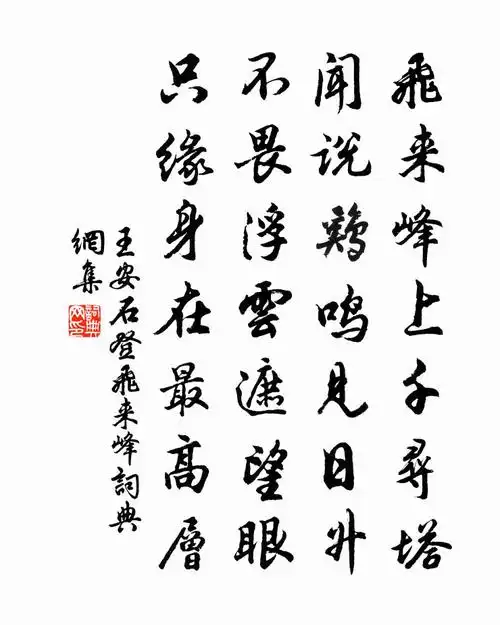 飛来峰上千尋塔
聞説鷄鳴見日升
不畏浮雲遮望眼
只緣身在最高層
王安石登飛来峰詞典
網集
詞典网印